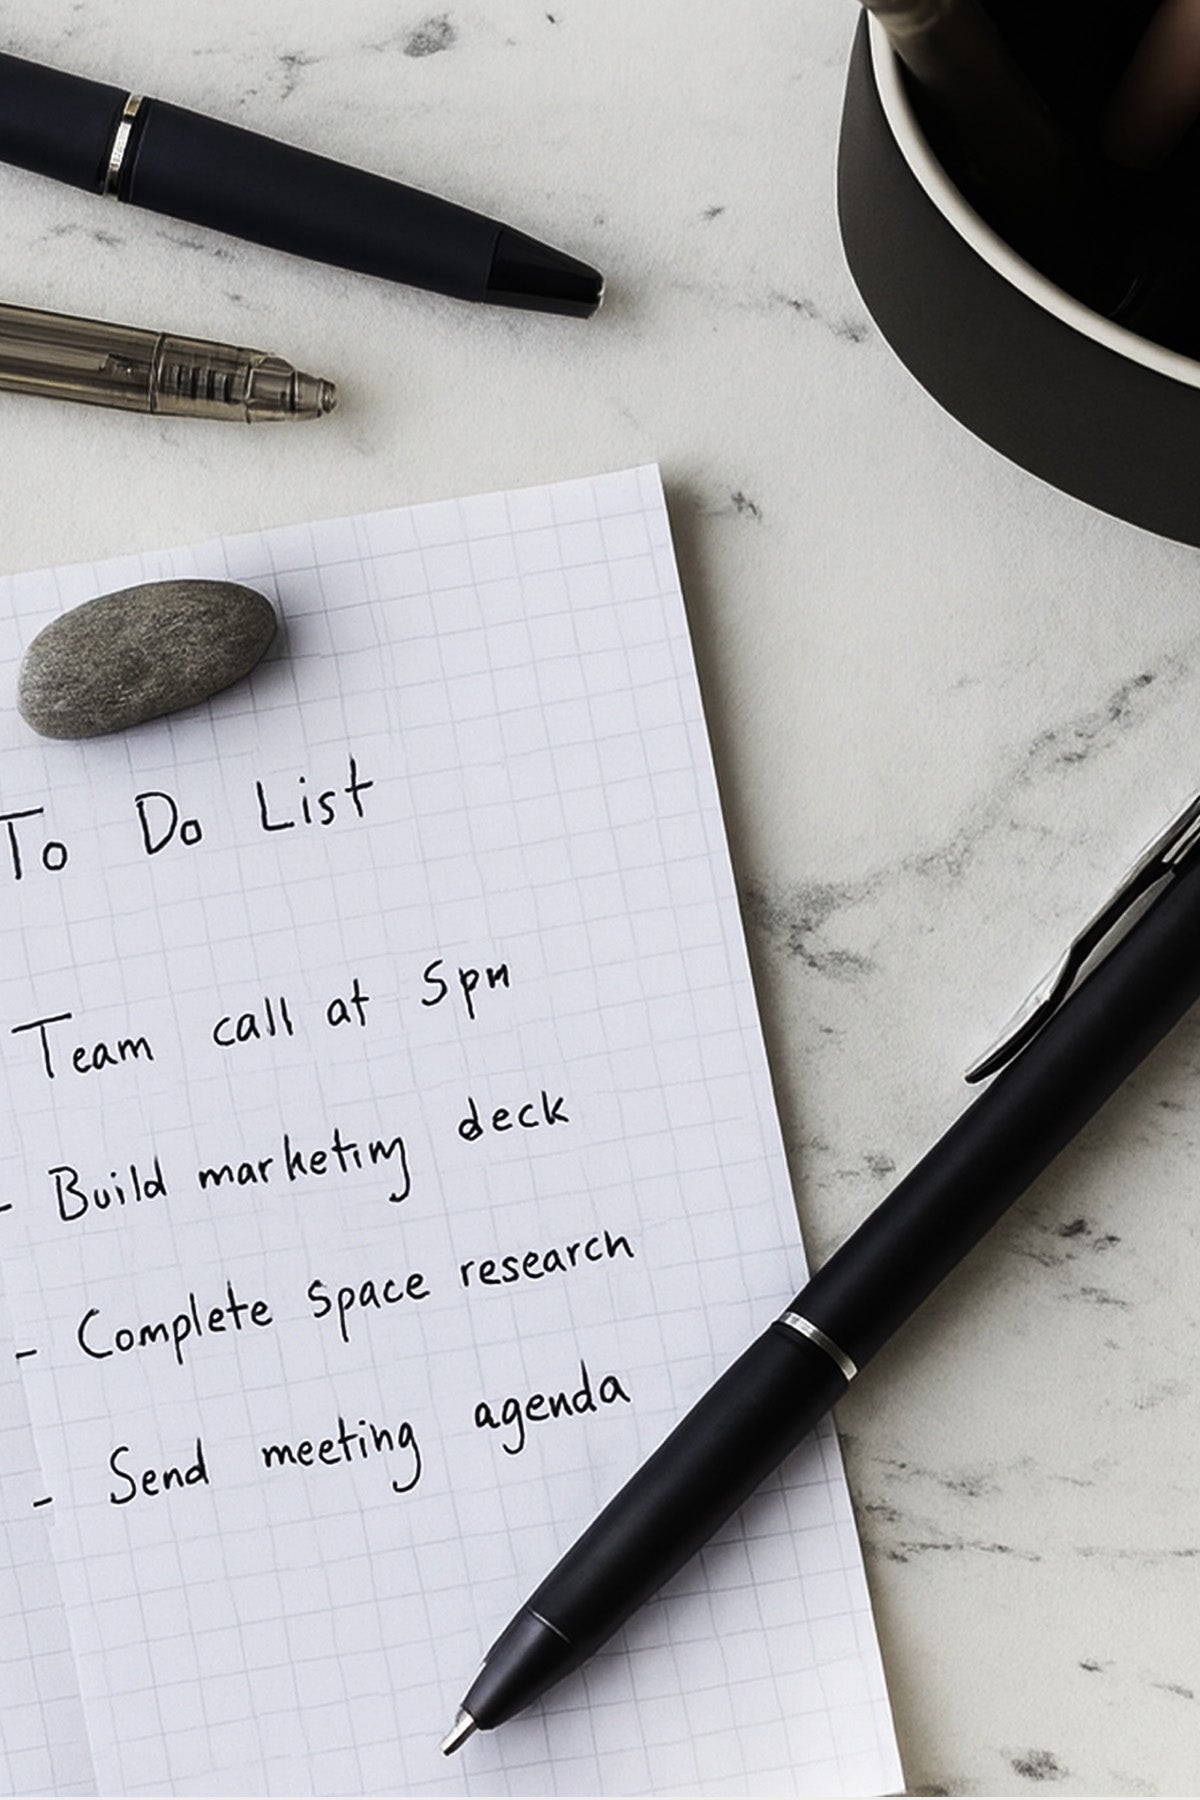 To Do List
Team call at 5pm
- Build marketing deck
- Complete space research
- Send meeting agenda